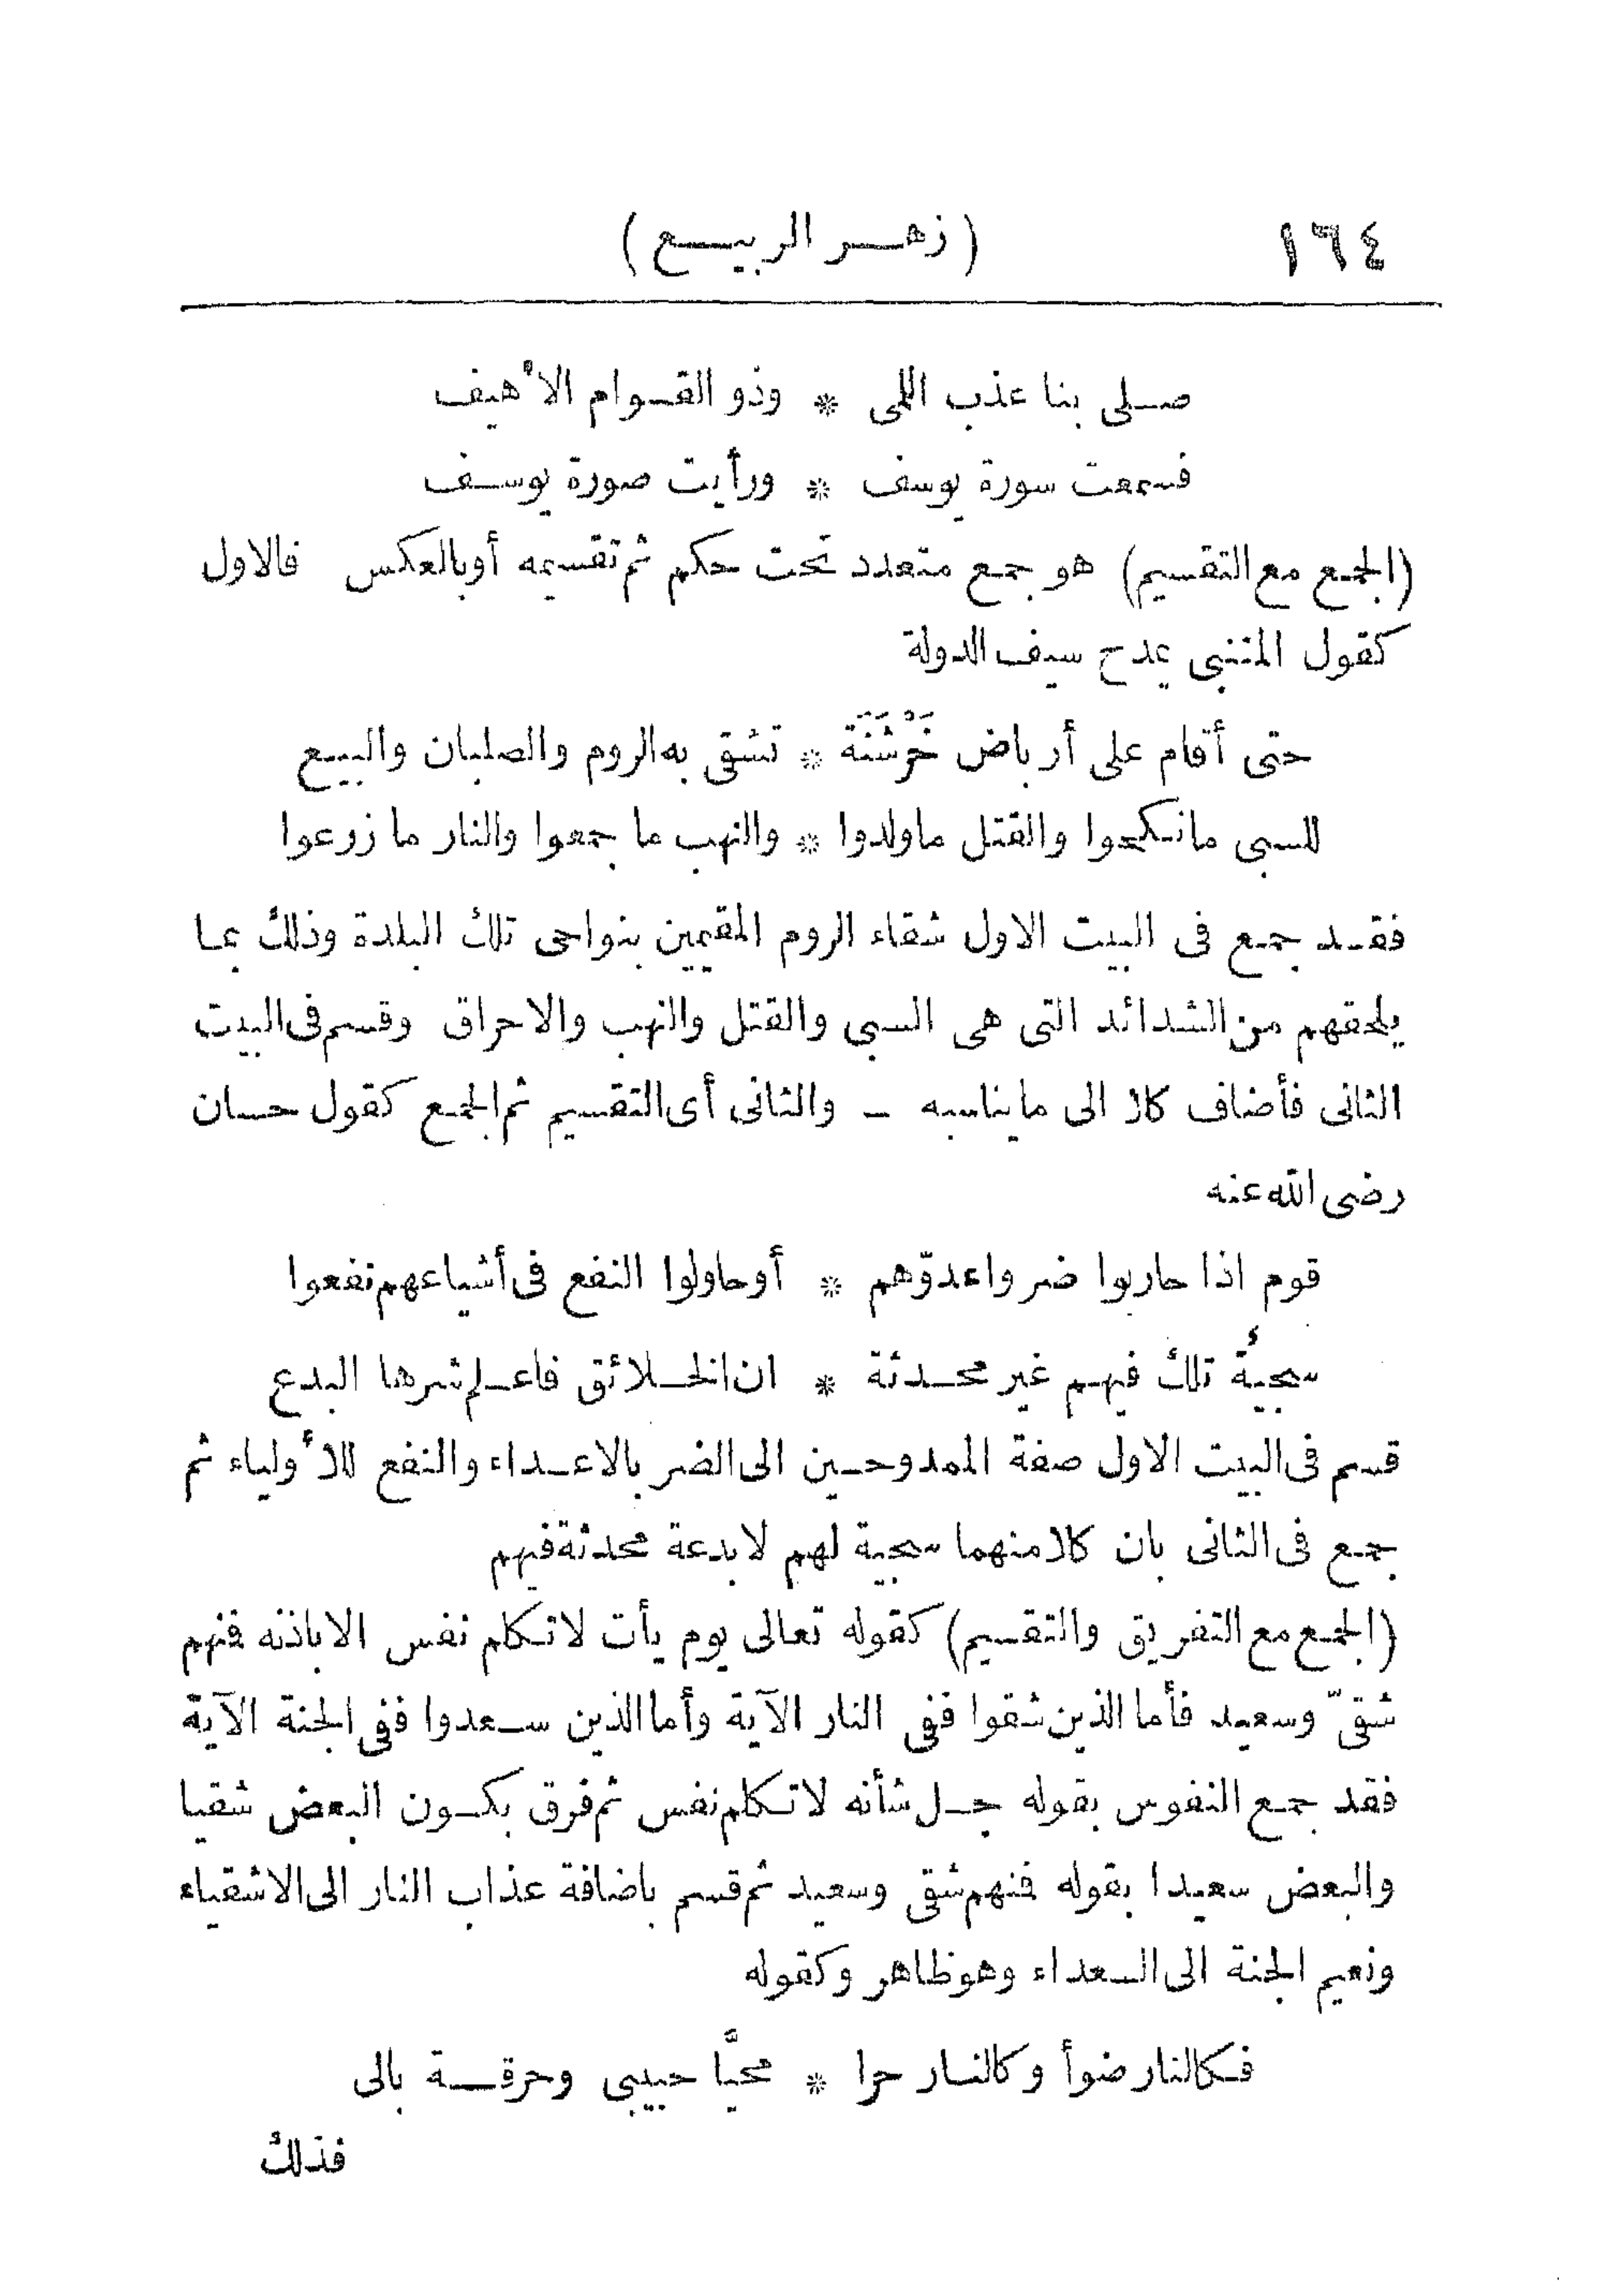 ١٦٤ (زهر الربيع)
صلى بنا عذب اللمى * وذو القوام الأهيف
فسمعت سورة يوسف * ورأيت صورة يوسف
(الجمع مع التقسيم) هو جمع متعدد تحت حكم ثم تقسيمه أو بالعكس فالاول
كقول المتنبى يمدح سيف الدولة
حتى أقام على أرباض خَرْشَنَة * تشقى به الروم والصلبان والبيع
للسبى ما نكحوا والقتل ما ولدوا * والنهب ما جمعوا والنار ما زرعوا
فقد جمع فى البيت الاول شقاء الروم المقيمين بنواحى تلك البلدة وذلك بما
يلحقهم من الشدائد التى هى السبى والقتل والنهب والاحراق وقسم فى البيت
الثانى فأضاف كلا الى ما يناسبه ـ والثانى أى التقسيم ثم الجمع كقول حسان
رضى الله عنه
قوم اذا حاربوا ضروا عدوّهم * أو حاولوا النفع فى أشياعهم نفعوا
سجيةُ تلك فيهم غير محدثة * ان الخلائق فاعلم شرها البدع
قسم فى البيت الاول صفة الممدوحين الى الضر بالاعداء والنفع للأولياء ثم
جمع فى الثانى بان كلا منهما سجية لهم لا بدعة محدثة فيهم
(الجمع مع التفريق والتقسيم) كقوله تعالى يوم يأت لا تكلم نفس الا باذنه فمنهم
شقىّ وسعيد فأما الذين شقوا ففى النار الآية وأما الذين سعدوا ففى الجنة الآية
فقد جمع النفوس بقوله جل شأنه لا تكلم نفس ثم فرق بكون البعض شقيا
والبعض سعيدا بقوله فمنهم شقى وسعيد ثم قسم باضافة عذاب النار الى الاشقياء
ونعيم الجنة الى السعداء وهو ظاهر وكقوله
فكالنار ضوأ وكالنار حرا * محيَّا حبيبى وحرقة بالى
فذلك